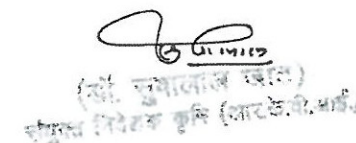 (डॉ. सुवालाल जाट)
संयुक्त निदेशक कृषि (आर.के.वी.आई.